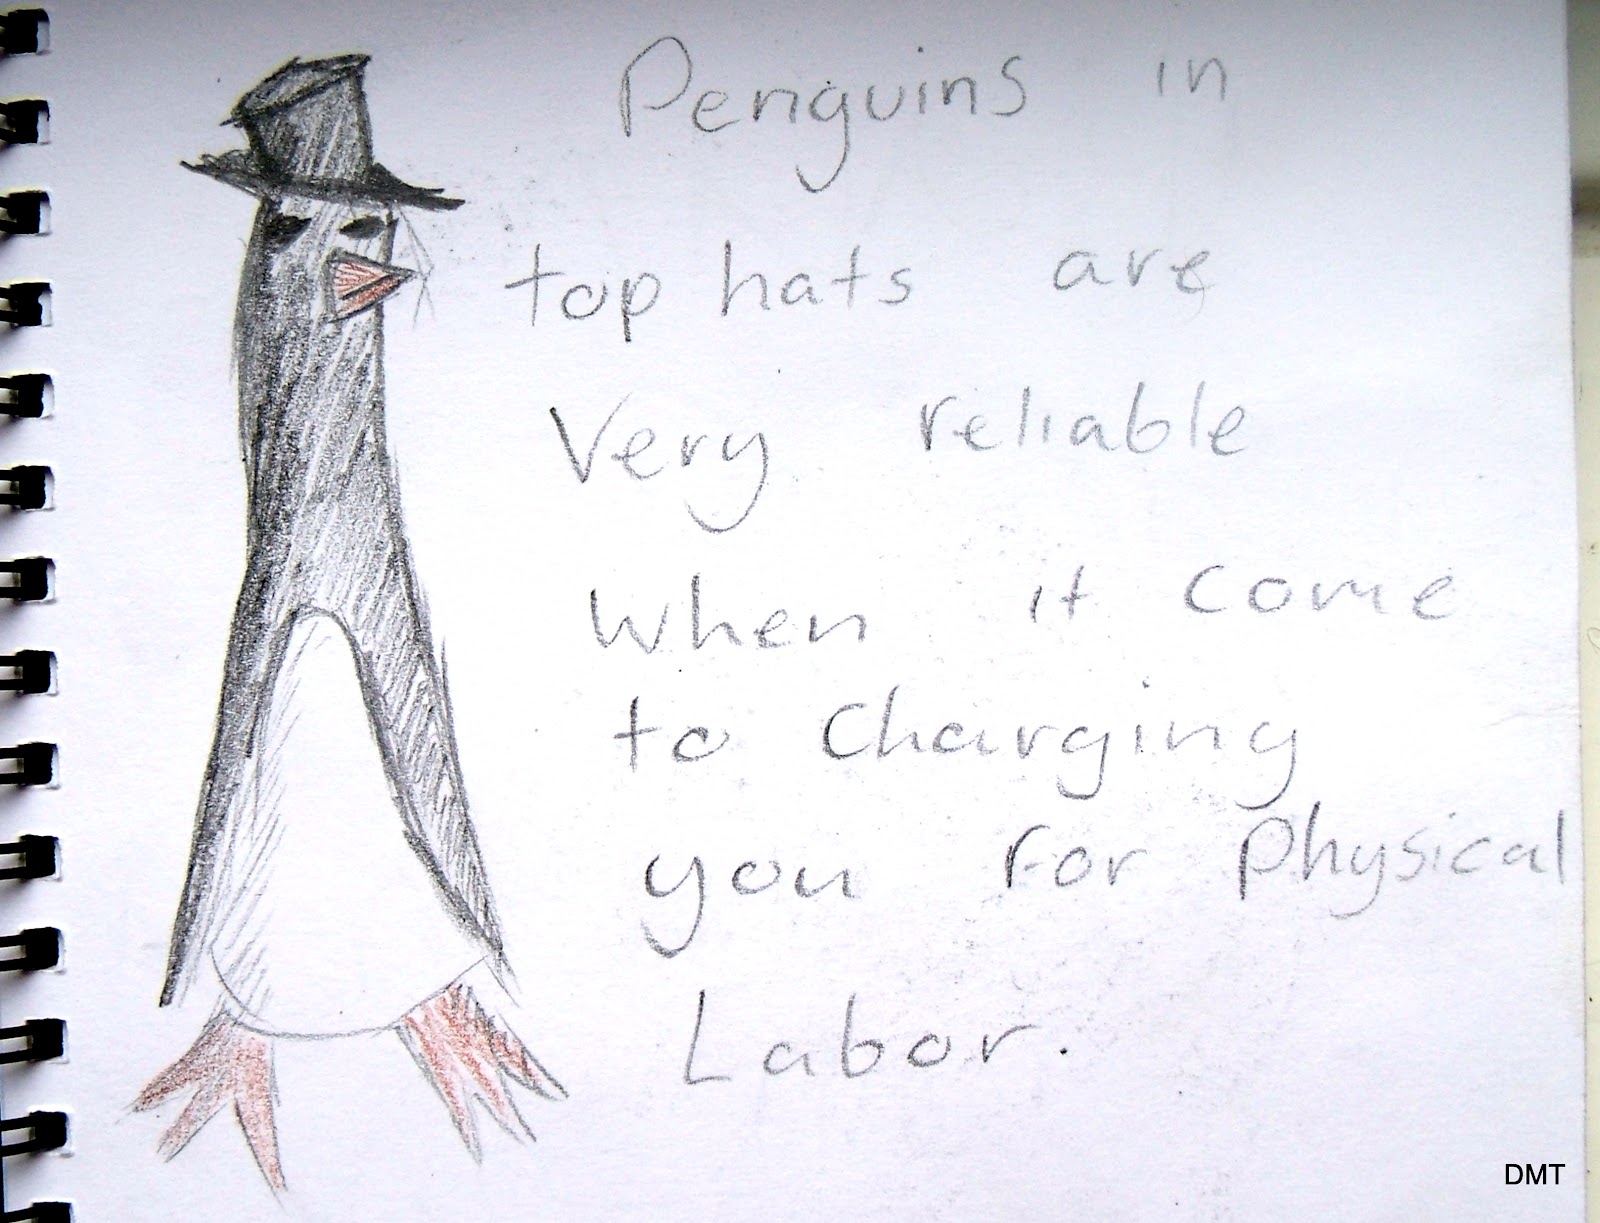 Penguins in
top hats are
Very reliable
when it come
to charging
you for physical
Labor.
DMT